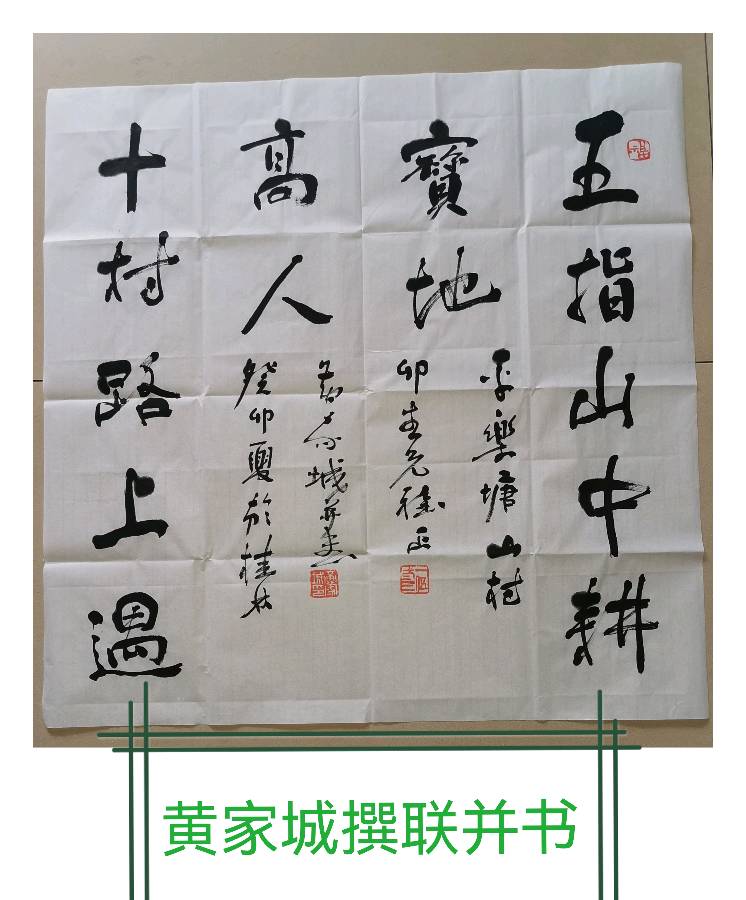 五指山中耕
寶地
平樂塘山村
卯生兄雅正
高人
黄家城并書
癸卯夏於桂林
十村路上遇
黄家城撰联并书